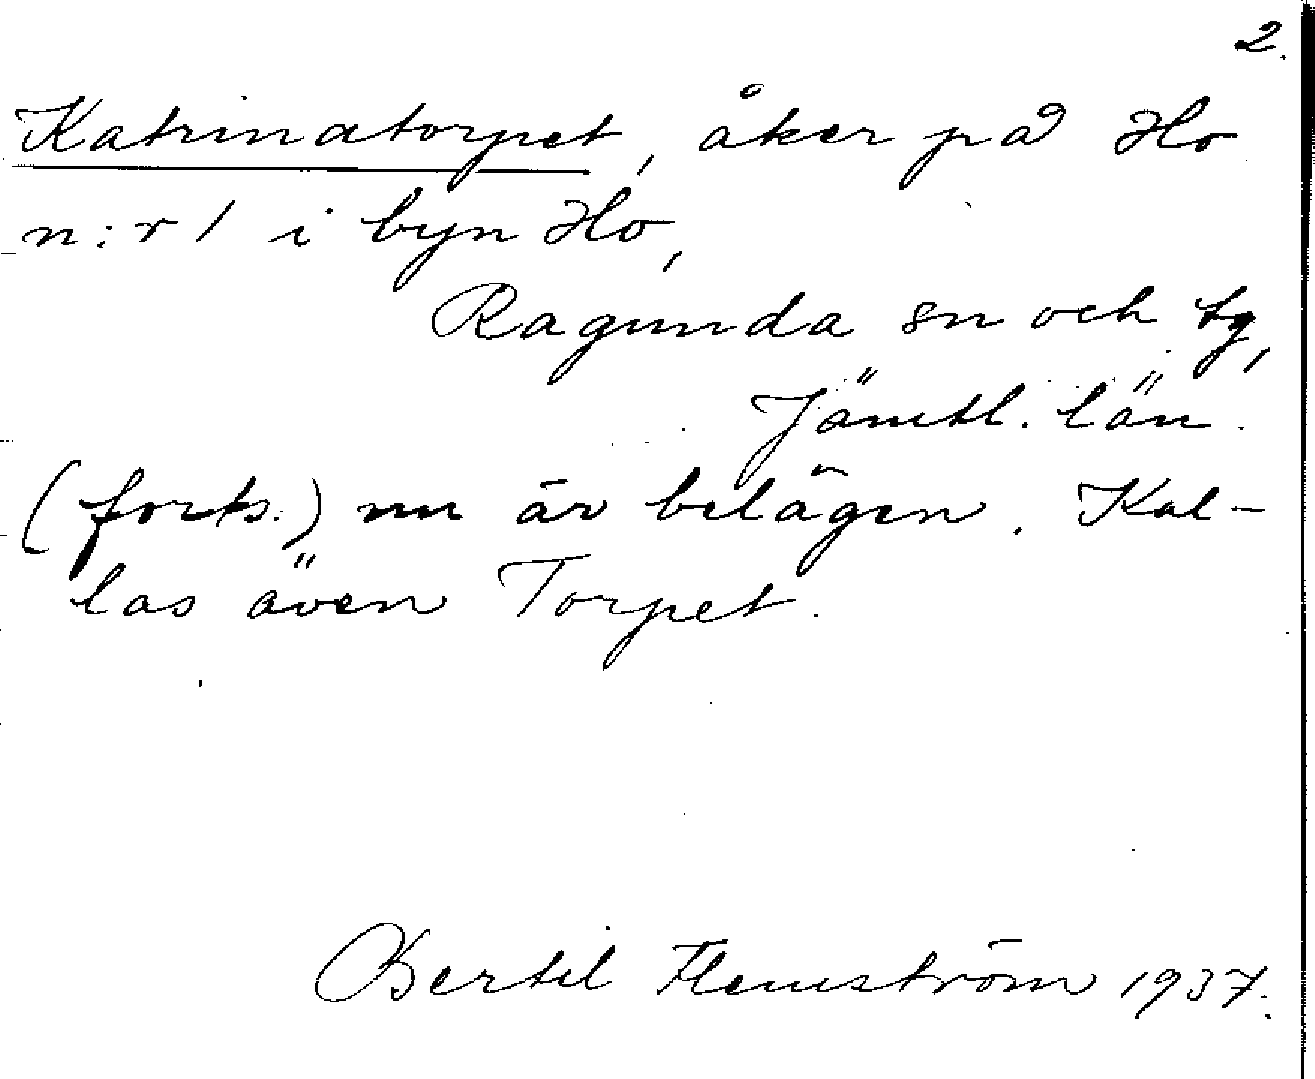 2.
Katrinatorpet, åker på Ho
n:r 1 i byn Ho,
Ragunda sn och tg,
Jämtl. län.
(forts.) nu är belägen. Kal-
las även Torpet.
Bertil Flemström 1937.